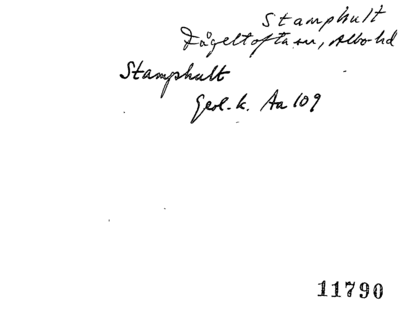 Stamphult
Fågeltofta sn, Albo hd
Stamphult
Geol. k. Aa 109
11790